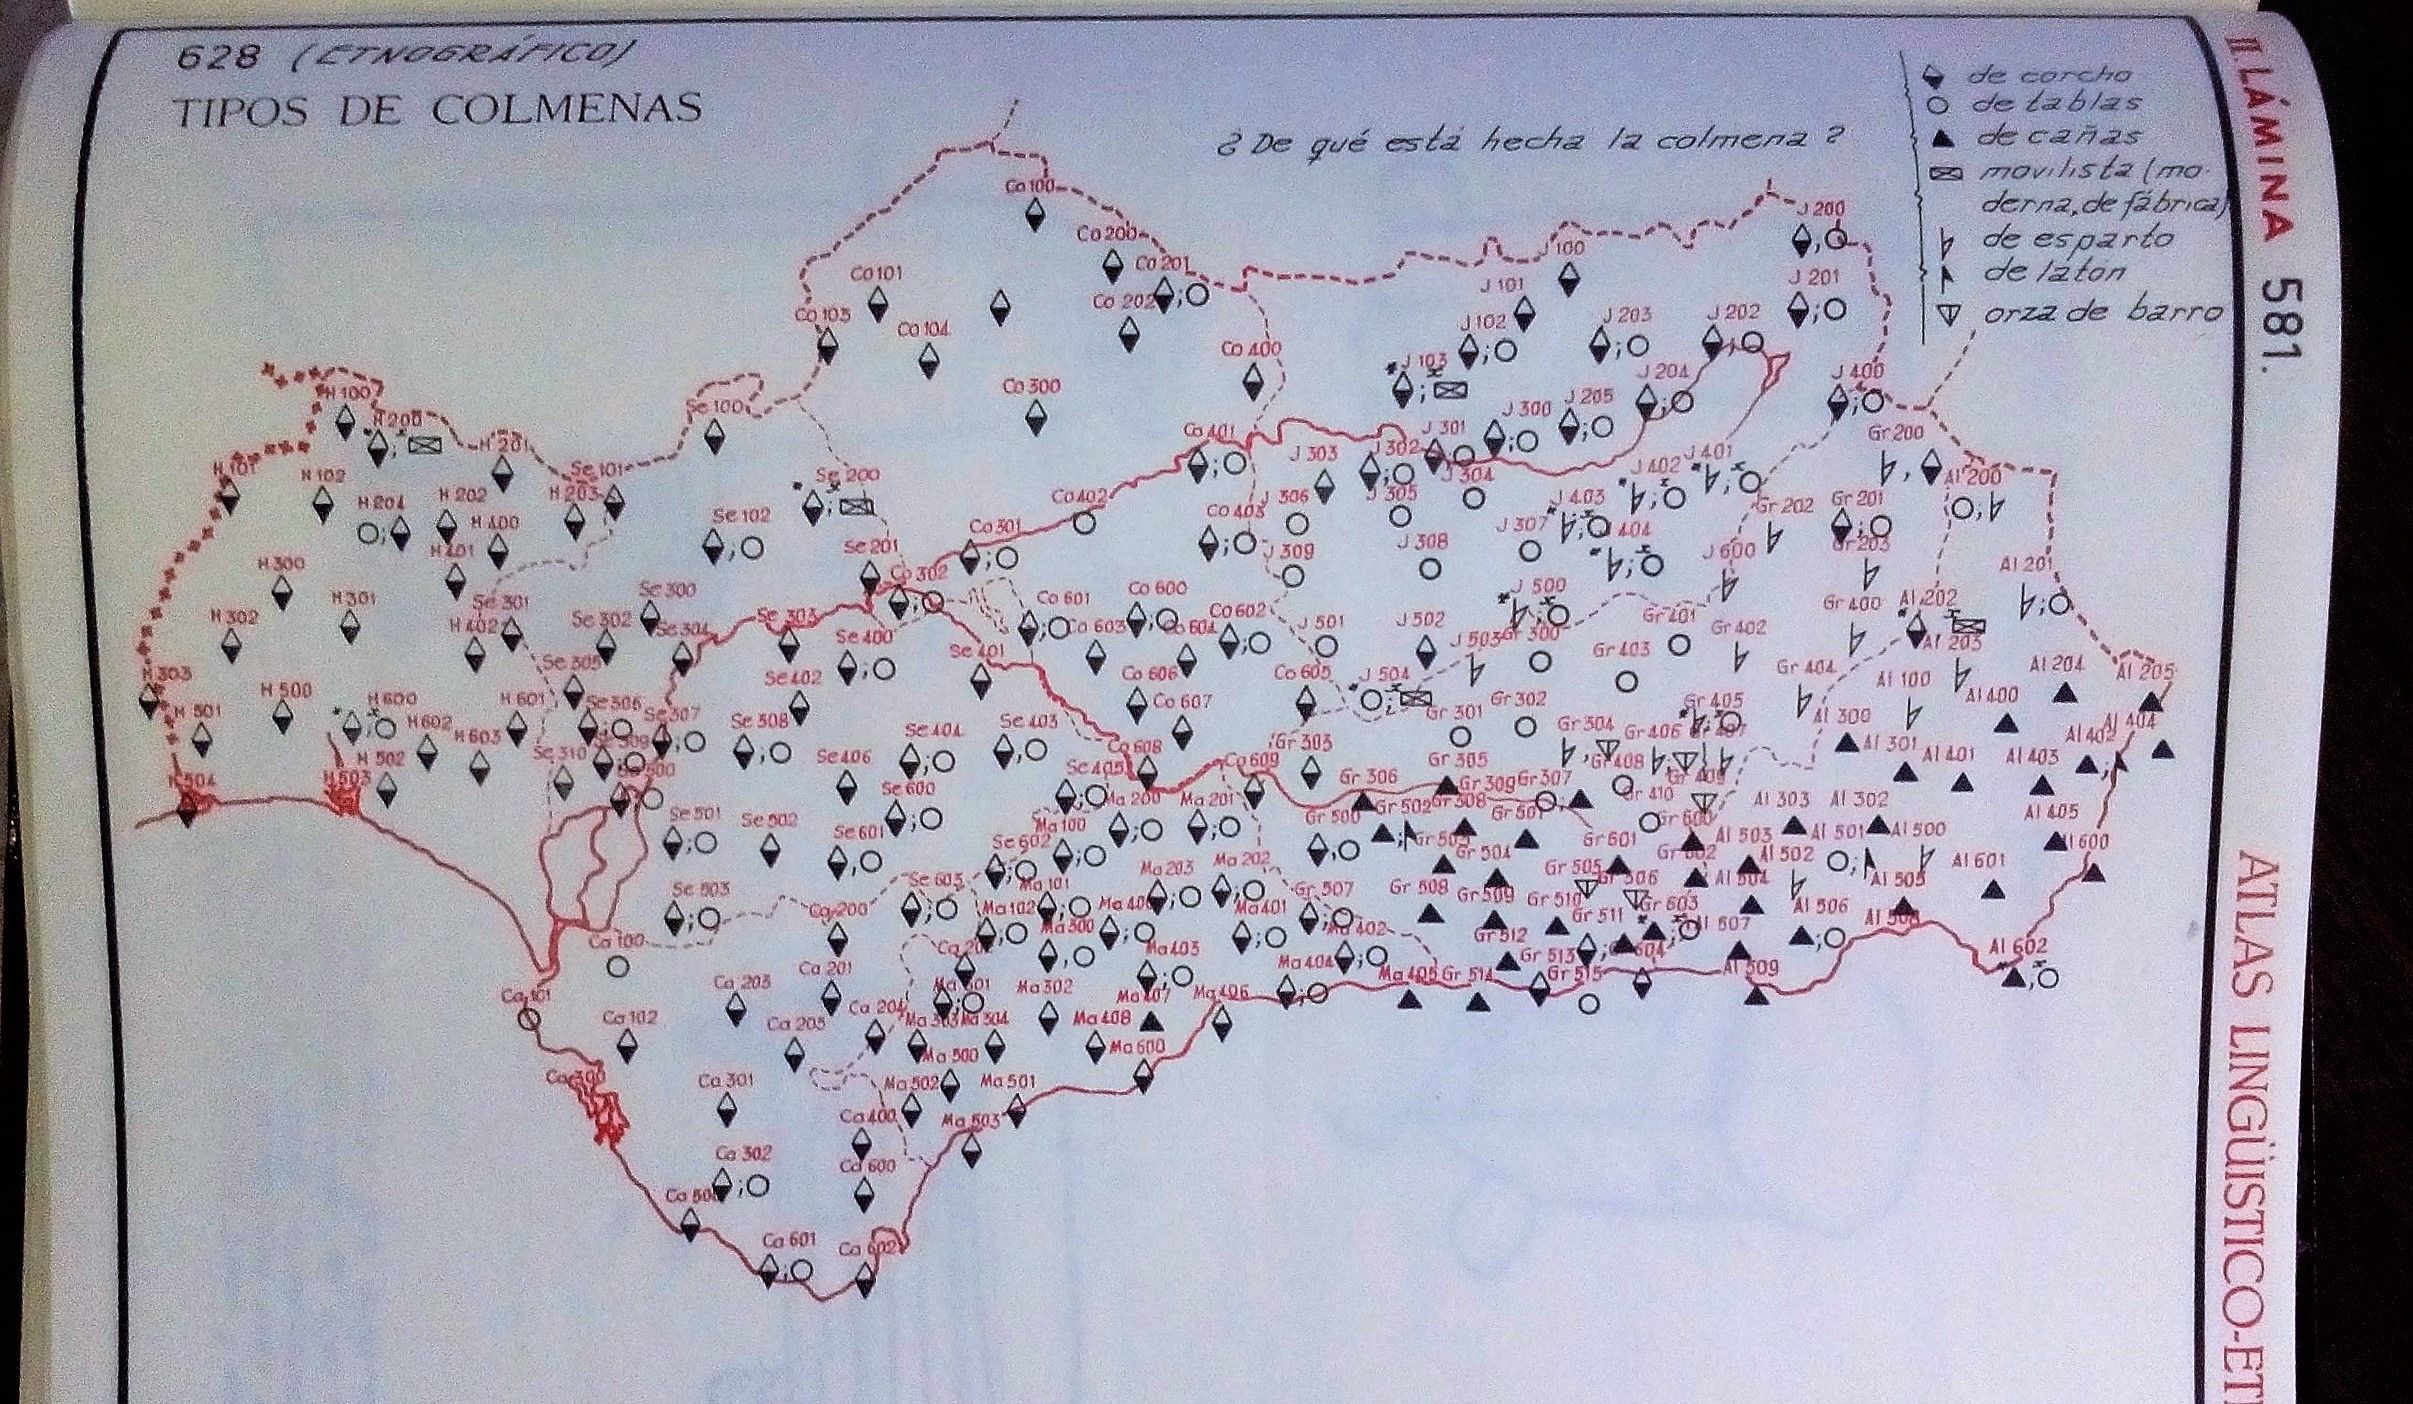 628 (ETNOGRÁFICO)
TIPOS DE COLMENAS
¿De qué está hecha la colmena?
de corcho
de tablas
de cañas
movilista (mo-
derna, de fábrica)
de esparto
de latón
orza de barro
II. LÁMINA 581.
ATLAS LINGÜÍSTICO-ET
Co 100
Co 200
Co 201
Co 101
Co 202
Co 103
Co 104
Co 300
Co 400
J 200
100
J 101
J 201
J 102
J 203
J 202
J 103
J 204
J 400
J 205
J 300
J 301
J 302
J 303
J 304
J 305
J 306
J 401
J 402
J 403
J 404
J 307
J 308
J 309
J 600
J 500
J 501
J 502
J 503
J 504
H 100
H 200
H 201
H 101
H 102
H 204
H 202
H 203
H 400
H 401
H 300
H 301
H 302
H 402
H 303
H 500
H 501
H 600
H 601
H 602
H 603
H 502
H 503
H 504
Se 100
Se 101
Se 200
Se 102
Se 201
Se 300
Se 301
Se 302
Se 303
Se 304
Se 400
Se 401
Se 305
Se 402
Se 306
Se 307
Se 308
Se 404
Se 403
Se 310
Se 406
Se 405
Se 600
Se 501
Se 502
Se 601
Se 602
Se 503
Se 603
Co 401
Co 402
Co 403
Co 301
Co 302
Co 601
Co 600
Co 602
Co 603
Co 604
Co 605
Co 606
Co 607
Co 608
Co 609
Gr 200
Gr 201
Gr 202
Gr 203
Gr 400
Gr 401
Gr 402
Gr 300
Gr 403
Gr 404
Gr 302
Gr 405
Gr 301
Gr 304
Gr 406
Gr 407
Gr 303
Gr 305
Gr 408
Gr 409
Gr 306
Gr 309
Gr 307
Gr 410
Gr 502
Gr 308
Gr 500
Gr 501
Gr 600
Gr 503
Gr 504
Gr 601
Gr 602
Gr 505
Gr 506
Gr 507
Gr 508
Gr 509
Gr 510
Gr 511
Gr 603
Gr 512
Gr 513
Gr 514
Gr 515
Al 200
Al 201
Al 202
Al 203
Al 204
Al 205
Al 100
Al 400
Al 300
Al 404
Al 402
Al 301
Al 401
Al 403
Al 303
Al 302
Al 405
Al 503
Al 501
Al 500
Al 600
Al 502
Al 601
Al 504
Al 505
Al 506
Al 507
Al 508
Al 509
Al 602
Ma 200
Ma 201
Ma 100
Ma 203
Ma 202
Ma 101
Ma 102
Ma 401
Ma 300
Ma 402
Ma 403
Ma 404
Ma 405
Ma 302
Ma 407
Ma 406
Ma 303
Ma 304
Ma 408
Ma 500
Ma 600
Ma 502
Ma 501
Ma 503
Ca 200
Ca 100
Ca 202
Ca 201
Ca 203
Ca 101
Ca 102
Ca 204
Ca 205
Ca 300
Ca 301
Ca 400
Ca 302
Ca 600
Ca 601
Ca 602